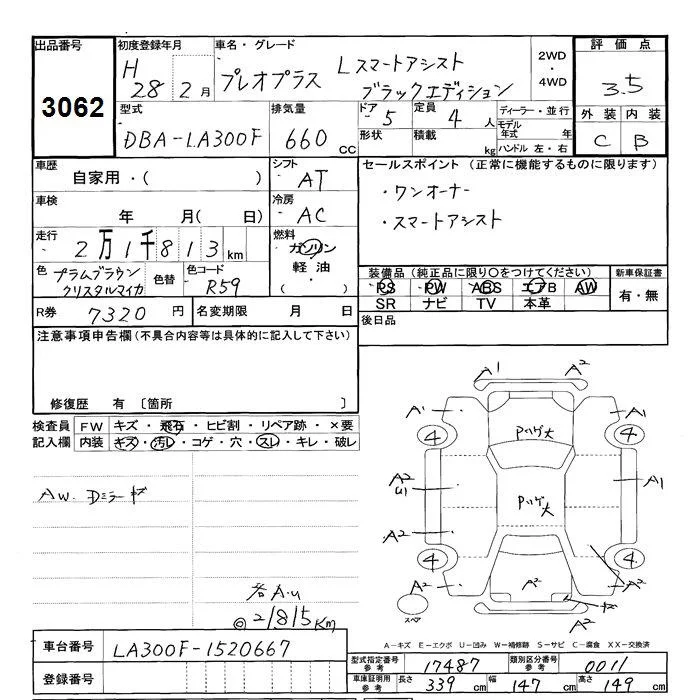 出品番号 初度登録年月 車名・グレード 2WD・4WD 評価点
3062 H28 2月 プレオプラス Lスマートアシスト ブラックエディション 3.5
外装 内装
C B
型式 排気量 ドア 定員 ディーラー・並行
DBA-LA300F 660cc 5 4人 モデル年式 年
形状 積載 kg ハンドル 左・右
車歴 シフト セールスポイント(正常に機能するものに限ります)
自家用・( ) AT
・ワンオーナー
車検 冷房
年 月( 日) AC
・スマートアシスト
走行 燃料
2万1千813km ガソリン
軽油・
( )
色 プラムブラウンクリスタルマイカ 色替 色コード R59
装備品(純正品に限り○をつけてください) 新車保証書
PS PW ABS エアB AW 有・無
SR ナビ TV 本革
R券 7320円 名変期限 月 日 後日品
注意事項申告欄(不具合内容等は具体的に記入して下さい)
修復歴 有 〔箇所 〕
検査員記入欄 FW キズ・飛石・ヒビ割・リペア跡・×要
内装 キズ・汚レ・コゲ・穴・スレ・キレ・破レ
A1 A2
A1 A1
4 Pハゲ大 4
AW. Dミラーキズ
A2 U1 Pハゲ大 A1
A2
4 4
A2 A2 A2
A2
スペア
各A.U
◎21815Km
A-キズ E-エクボ U-凹み W-補修跡 S-サビ C-腐食 XX-交換済
車台番号 LA300F-1520667
型式指定番号 参考 17487 類別区分番号 参考 0011
登録番号
車庫証明用 参考 長さ 339cm 幅 147cm 高さ 149cm